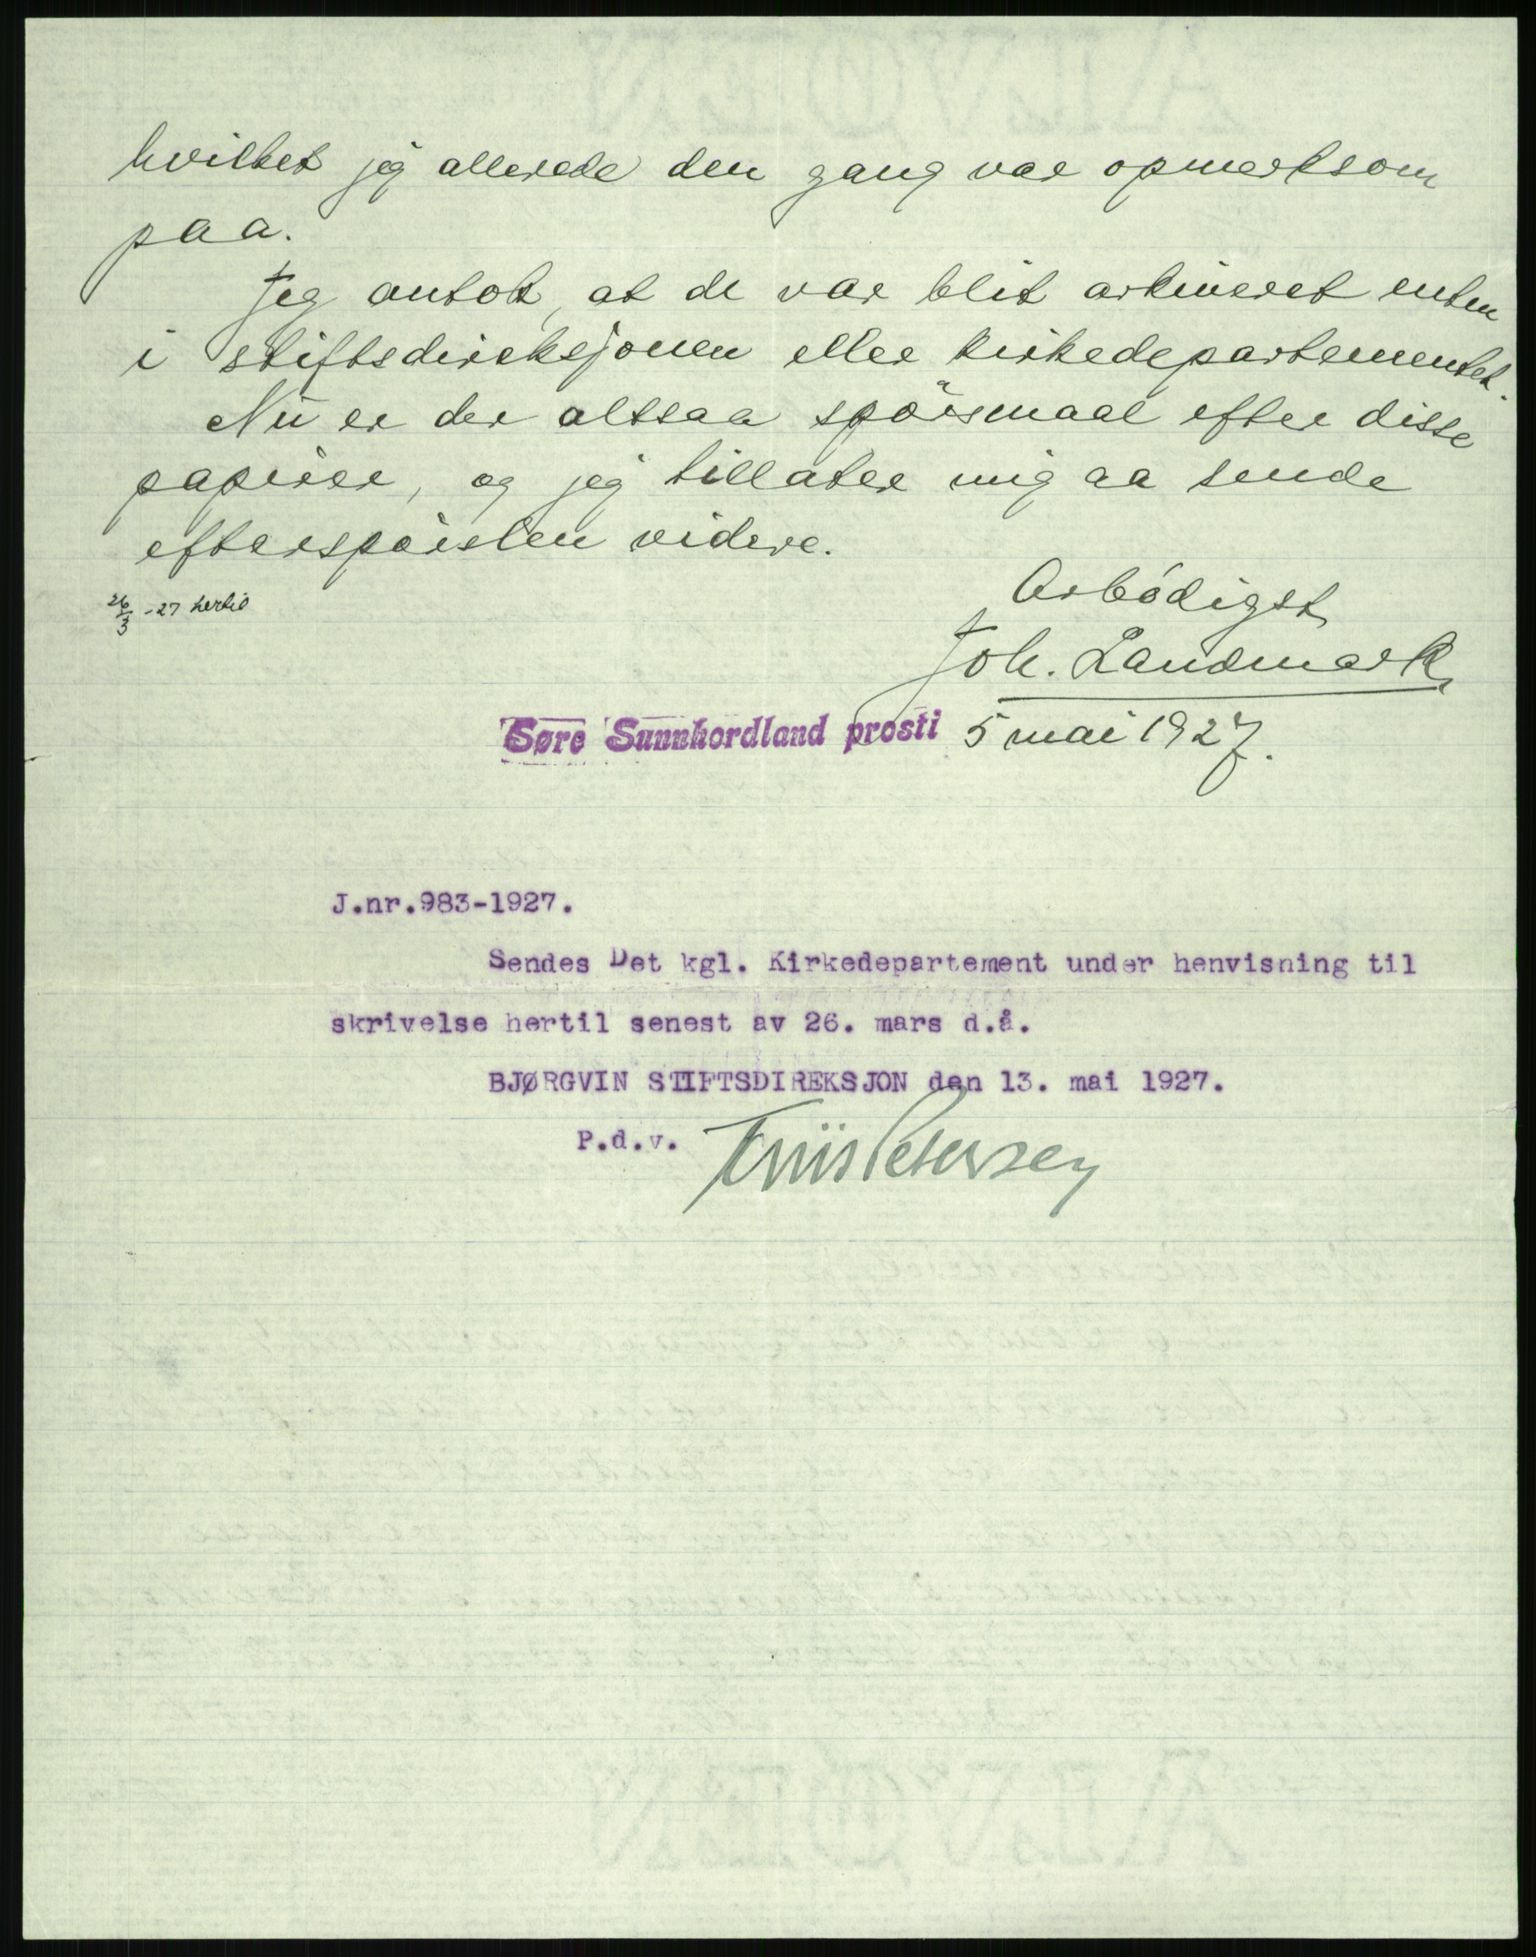 hvilket jeg allerede den gang var opmerksom
paa.
Jeg antok, at de var blit arkiveret enten
i stiftsdireksjonen eller kirkedepartementet.
Nu er der altsaa spörsmaal efter disse
papirer, og jeg tillater mig aa sende
efterspörslen videre.
26/3 -27 hertil
Arbödigst
Joh. Landmark
Søre Sunnhordland prosti 5 mai 1927.
J.nr.983-1927.
Sendes Det kgl. Kirkedepartement under henvisning til
skrivelse hertil senest av 26. mars d.å.
BJØRGVIN STIFTSDIREKSJON den 13. mai 1927.
P.d.v. Friis Petersen